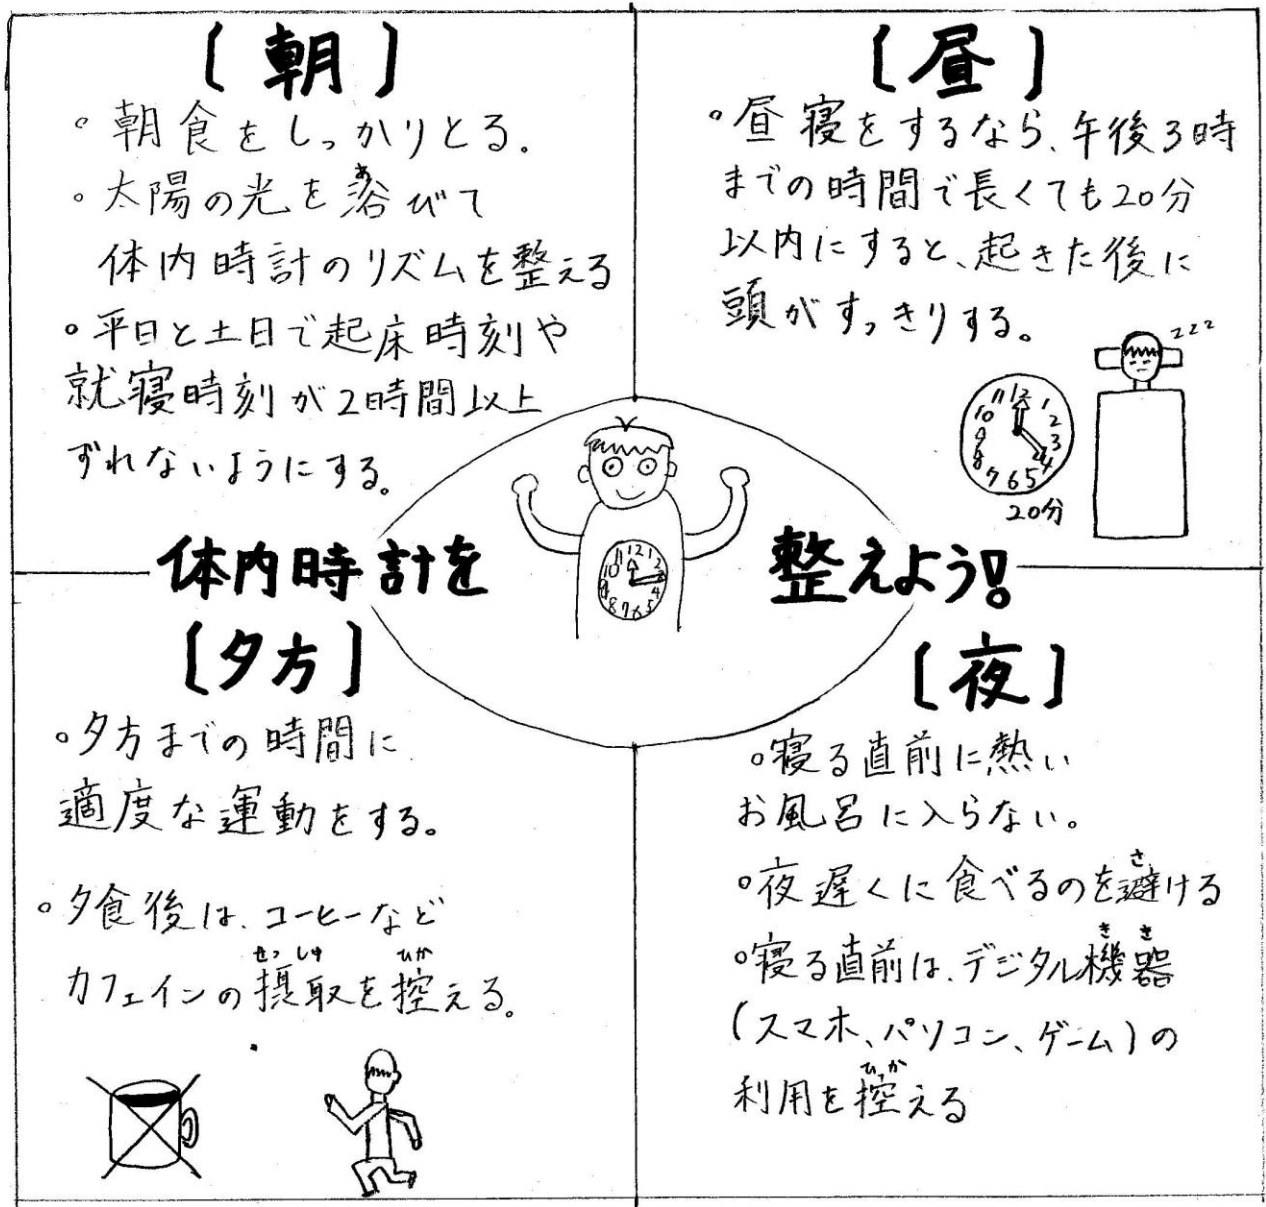 [朝]
。朝食をしっかりとる.
。太陽の光を浴びて
あ
体内時計のリズムを整える
。平日と土日で起床時刻や
就寝時刻が2時間以上
ずれないようにする。
[昼]
。昼寝をするなら、午後3時
までの時間で長くても20分
以内にすると、起きた後に
頭がすっきりする。
zzz
11 12 1 2 3 4 5 6 7 8 9 10
20分
体内時計を 整えよう!
11 12 1 2 3 4 5 6 7 8 9 10
[夕方]
。夕方までの時間に
適度な運動をする。
。夕食後は、コーヒーなど
せっしゅ ひか
カフェインの摂取を控える。
[夜]
。寝る直前に熱い
お風呂に入らない。
さ
。夜遅くに食べるのを避ける
きき
。寝る直前は、デジタル機器
(スマホ、パソコン、ゲーム)の
ひか
利用を控える